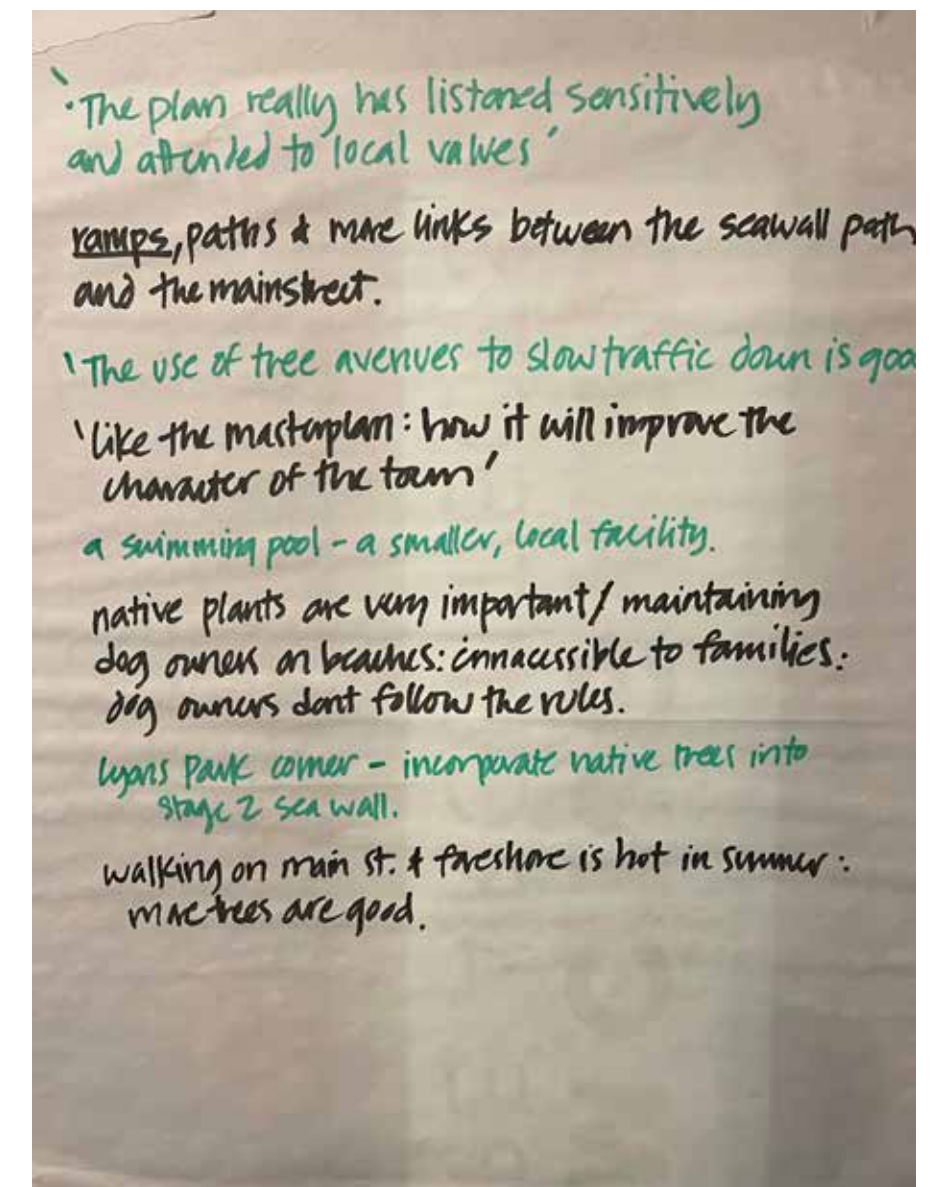 '• The plan really has listened sensitively
and attended to local values'
ramps, paths & more links between the seawall path
and the mainstreet.
'The use of tree avenues to slow traffic down is goo
'like the masterplan: how it will improve the
character of the town'
a swimming pool - a smaller, local facility.
native plants are very important/ maintaining
dog owners on beaches: innacessible to families.
dog owners dont follow the rules.
lyons park corner - incorporate native trees into
stage 2 sea wall.
walking on main st. & foreshore is hot in summer:
more trees are good.